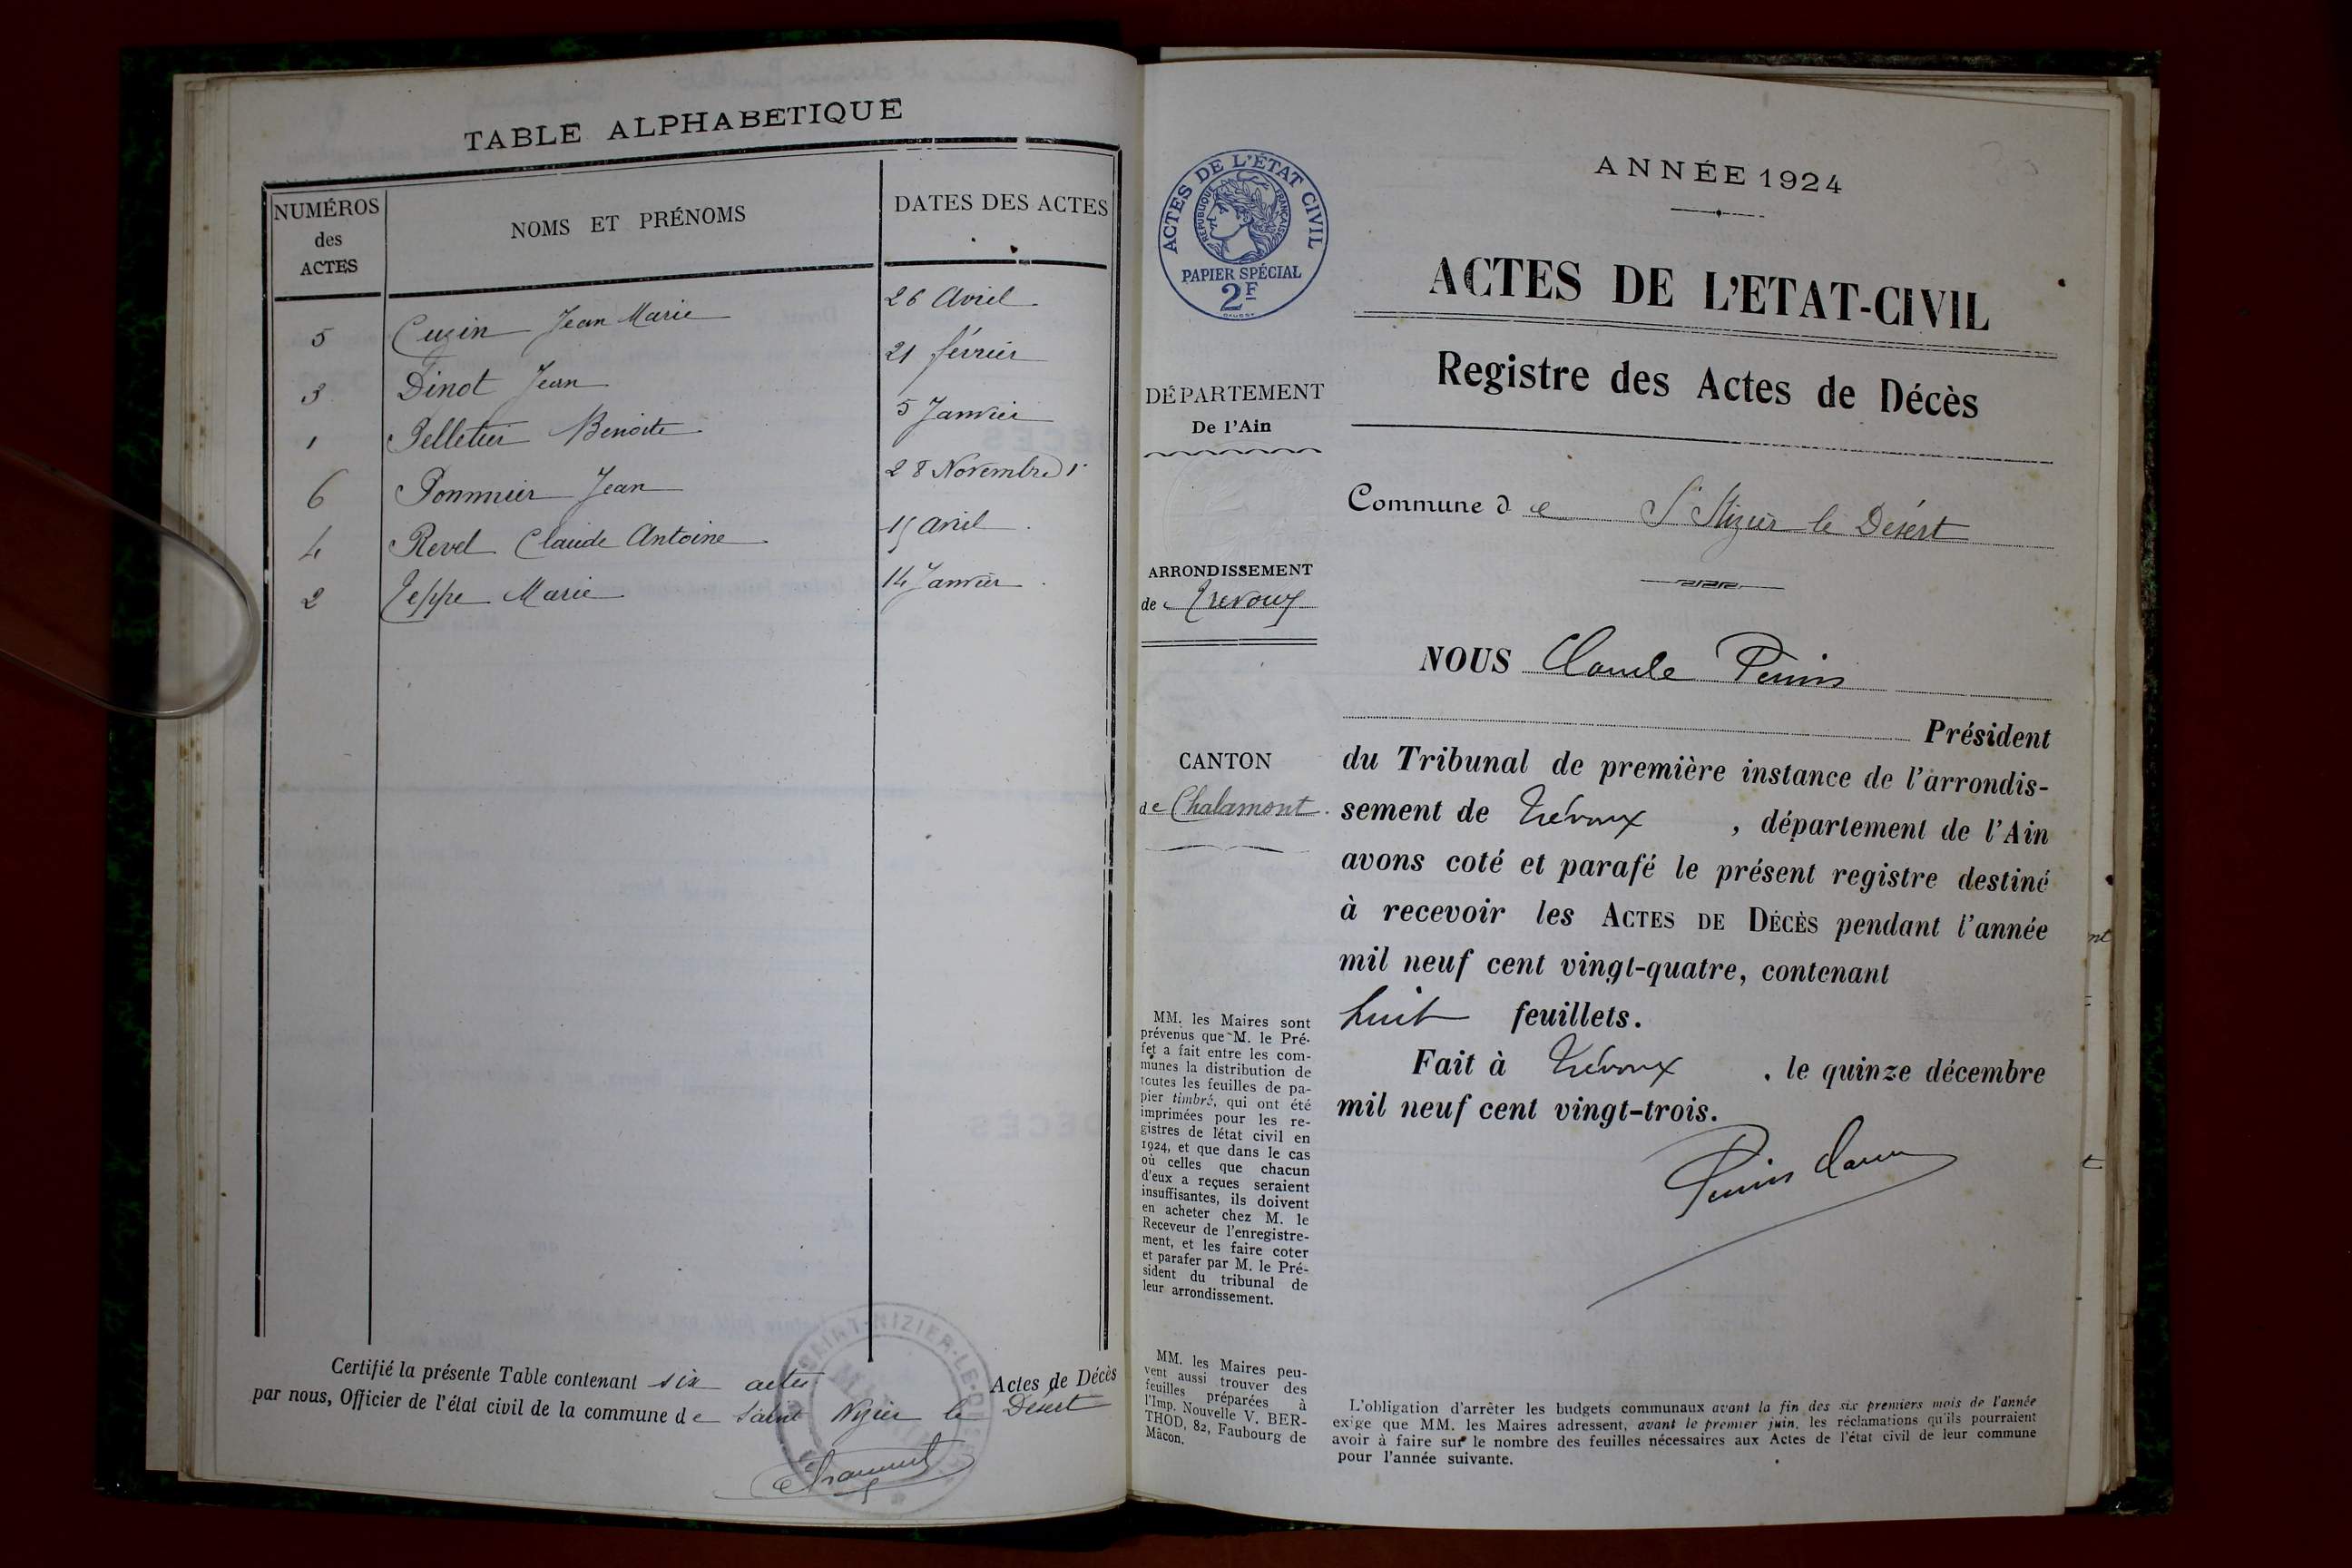 TABLE ALPHABETIQUE
NUMÉROS
des
ACTES
NOMS ET PRÉNOMS
DATES DES ACTES
5 Cuzin Jean Marie 26 Avril
3 Dinot Jean 21 février
1 Pelletier Benoite 5 Janvier
6 Pommier Jean 28 Novembre
4 Revel Claude Antoine 15 avril
2 Teppe Marie 14 Janvier
Certifié la présente Table contenant six actes Actes de Décès
par nous, Officier de l'état civil de la commune de Saint Nizier le Désert
SAINT-NIZIER-LE-DÉSERT
ACTES DE L'ÉTAT CIVIL
RÉPUBLIQUE FRANÇAISE
PAPIER SPÉCIAL
2F
DÉPARTEMENT
De l'Ain
ARRONDISSEMENT
de Trévoux
CANTON
de Chalamont.
MM. les Maires sont
prévenus que M. le Pré-
fet a fait entre les com-
munes la distribution de
toutes les feuilles de pa-
pier timbré, qui ont été
imprimées pour les re-
gistres de l'état civil en
1924, et que dans le cas
où celles que chacun
d'eux a reçues seraient
insuffisantes, ils doivent
en acheter chez M. le
Receveur de l'enregistre-
ment, et les faire coter
et parafer par M. le Pré-
sident du tribunal de
leur arrondissement.
MM. les Maires peu-
vent aussi trouver des
feuilles préparées à
l'Imp. Nouvelle V. BER-
THOD, 82, Faubourg de
Mâcon.
ANNÉE 1924
ACTES DE L'ETAT-CIVIL
Registre des Actes de Décès
Commune de St Nizier le Désert
NOUS Claude Perrin
Président
du Tribunal de première instance de l'arrondis-
sement de Trévoux, département de l'Ain
avons coté et parafé le présent registre destiné
à recevoir les ACTES DE DÉCÈS pendant l'année
mil neuf cent vingt-quatre, contenant
huit feuillets.
Fait à Trévoux, le quinze décembre
mil neuf cent vingt-trois.
L'obligation d'arrêter les budgets communaux avant la fin des six premiers mois de l'année
exige que MM. les Maires adressent, avant le premier juin, les réclamations qu'ils pourraient
avoir à faire sur le nombre des feuilles nécessaires aux Actes de l'état civil de leur commune
pour l'année suivante.